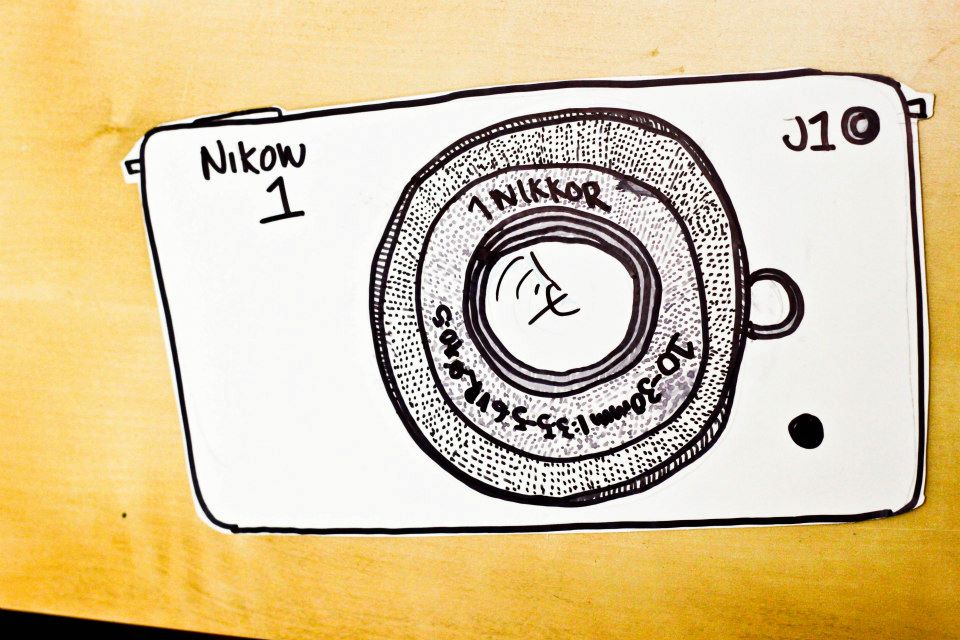 NIKOW
1
J1
1 NIKKOR
10-30mm 1:3.5-5.6 VR